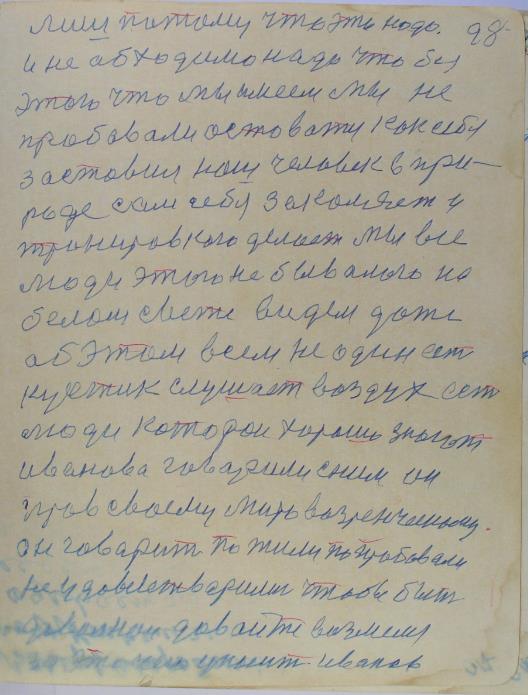 лиш потому что это надо. 98
и не обходимо надо что бы
этого что мы имеем мы не
пробовали остоватц как себя
заставил наш человек в при-
роде сам себя закаляет и
тронировкого делает мы все
люди этого не бывалого на
белом свете видем даже
об этом всем не один ест
кустик слушает воздух ест
люди которои хорошо знают
иванова говарили сним он
прав своему миро возренческому.
он говарит по жили попробовали
не удовлетварили чтобы быт
давайте возмем
что учит иванов